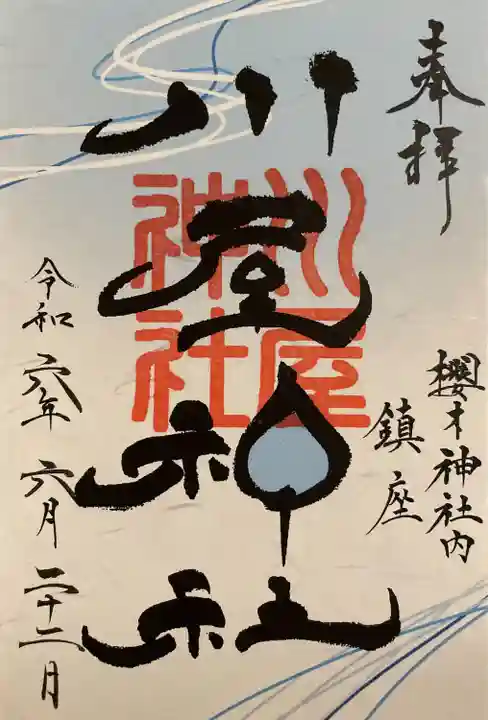 奉拝
櫻木神社内
鎮座
川屋神社
川屋
神社
令和六年六月二十二日